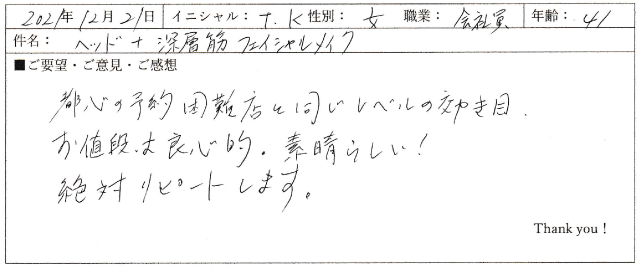 2021年12月21日 イニシャル：T.K 性別：女 職業：会社員 年齢：41
件名：ヘッド＋深層筋フェイシャルメイク
■ご要望・ご意見・ご感想
都心の予約困難店と同じレベルの効き目.
お値段は良心的。素晴らしい！
絶対リピートします。
Thank you！